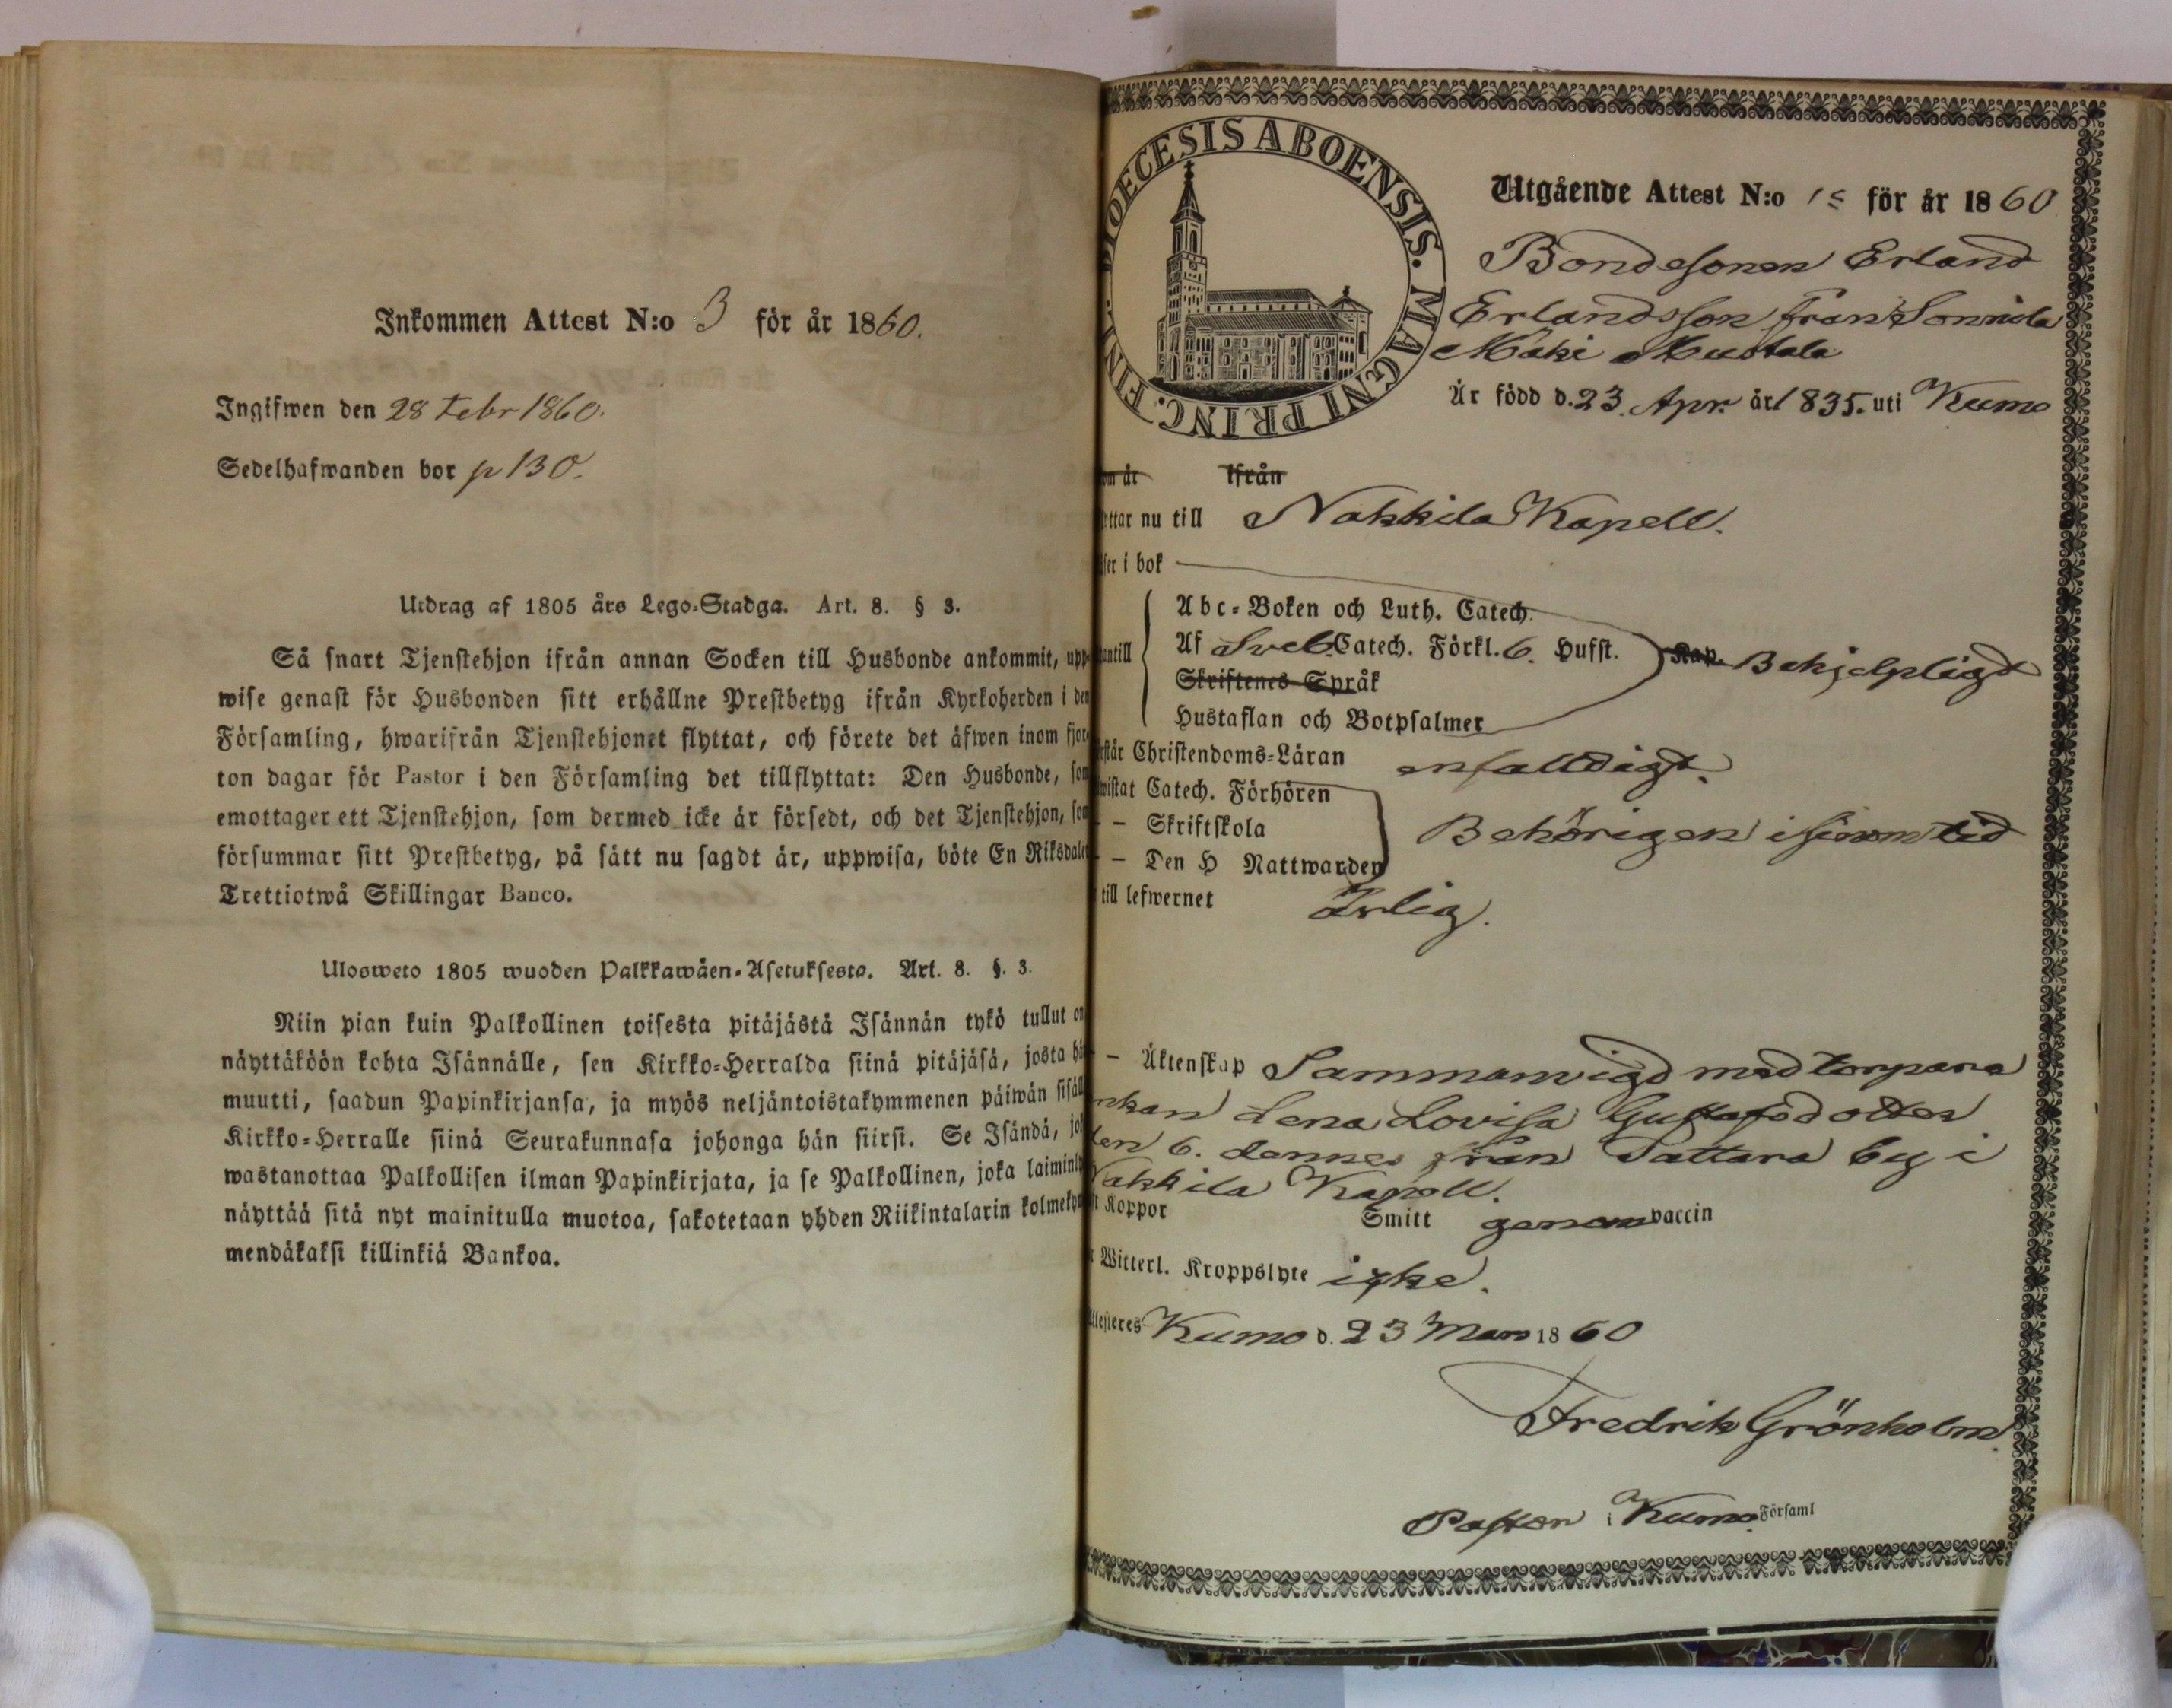 Inkommen Attest N:o 3 för år 1860.
Ingifwen den 28 Febr 1860.
Sedelhafwanden bor p 130.
Utdrag af 1805 års Lego-Stadga. Art. 8. § 3.
Så snart Tjenstehjon ifrån annan Socken till Husbonde ankommit, upp-
wise genast för Husbonden sitt erhållne Prestbetyg ifrån Kyrkoherden i den
Församling, hwarifrån Tjenstehjonet flyttat, och förete det äfwen inom fjor-
ton dagar för Pastor i den Församling det tillflyttat: Den Husbonde, som
emottager ett Tjenstehjon, som dermed icke är försedt, och det Tjenstehjon, som
försummar sitt Prestbetyg, på sätt nu sagdt är, uppwisa, böte En Riksdaler
Trettiotwå Skillingar Banco.
Ulosweto 1805 wuoden Palkkawäen-Asetuksesta. Art. 8. §. 3.
Niin pian kuin Palkollinen toisesta pitäjästä Isännän tykö tullut on
näyttäköön kohta Isännälle, sen Kirkko-Herralda siinä pitäjäsä, josta hän
muutti, saadun Papinkirjansa, ja myös neljäntoistakymmenen päiwän sisäll
Kirkko-Herralle siinä Seurakunnasa johonga hän siirsi. Se Isändä, jok
wastanottaa Palkollisen ilman Papinkirjata, ja se Palkollinen, joka laiminly
näyttää sitä nyt mainitulla muotoa, sakotetaan yhden Riikintalarin kolmekym
mendäkaksi killinkiä Bankoa.
DIOECESIS ABOENSIS. MAGNI PRINC. FINL.
Utgående Attest N:o för år 1860
Bondesonen Erland
Erlandsson från Sonnila
Mäki Mustala
Är född d. 23. Apr. år 1835. uti Kumo
om år ifrån
ettar nu till Nakkila Kapell.
äser i bok
antill
Abc-Boken och Luth. Catech.
Af Sveb. Catech. Förkl. 6. Hufst. Kap. Behjelpligt
Skriftenes Språk
Hustaflan och Botpsalmer
rstår Christendoms-Läran enfalldigt.
wistat Catech. Förhören
— Skriftskola Behörigen i sinom tid
— Den H Nattwarden
till lefwernet Ärlig.
— Äktenskap Sammanvigd med torpare
nkan Lena Lovisa Gustafsdotter
den 6. dennes från Tattara by i
Nakkila Kapell.
Koppor Smitt genom vaccin
Witterl. Kroppslyte icke.
Attesteres Kumo d. 23 Mars 1860
Fredrik Grönholm.
Pastor i Kumo Församl